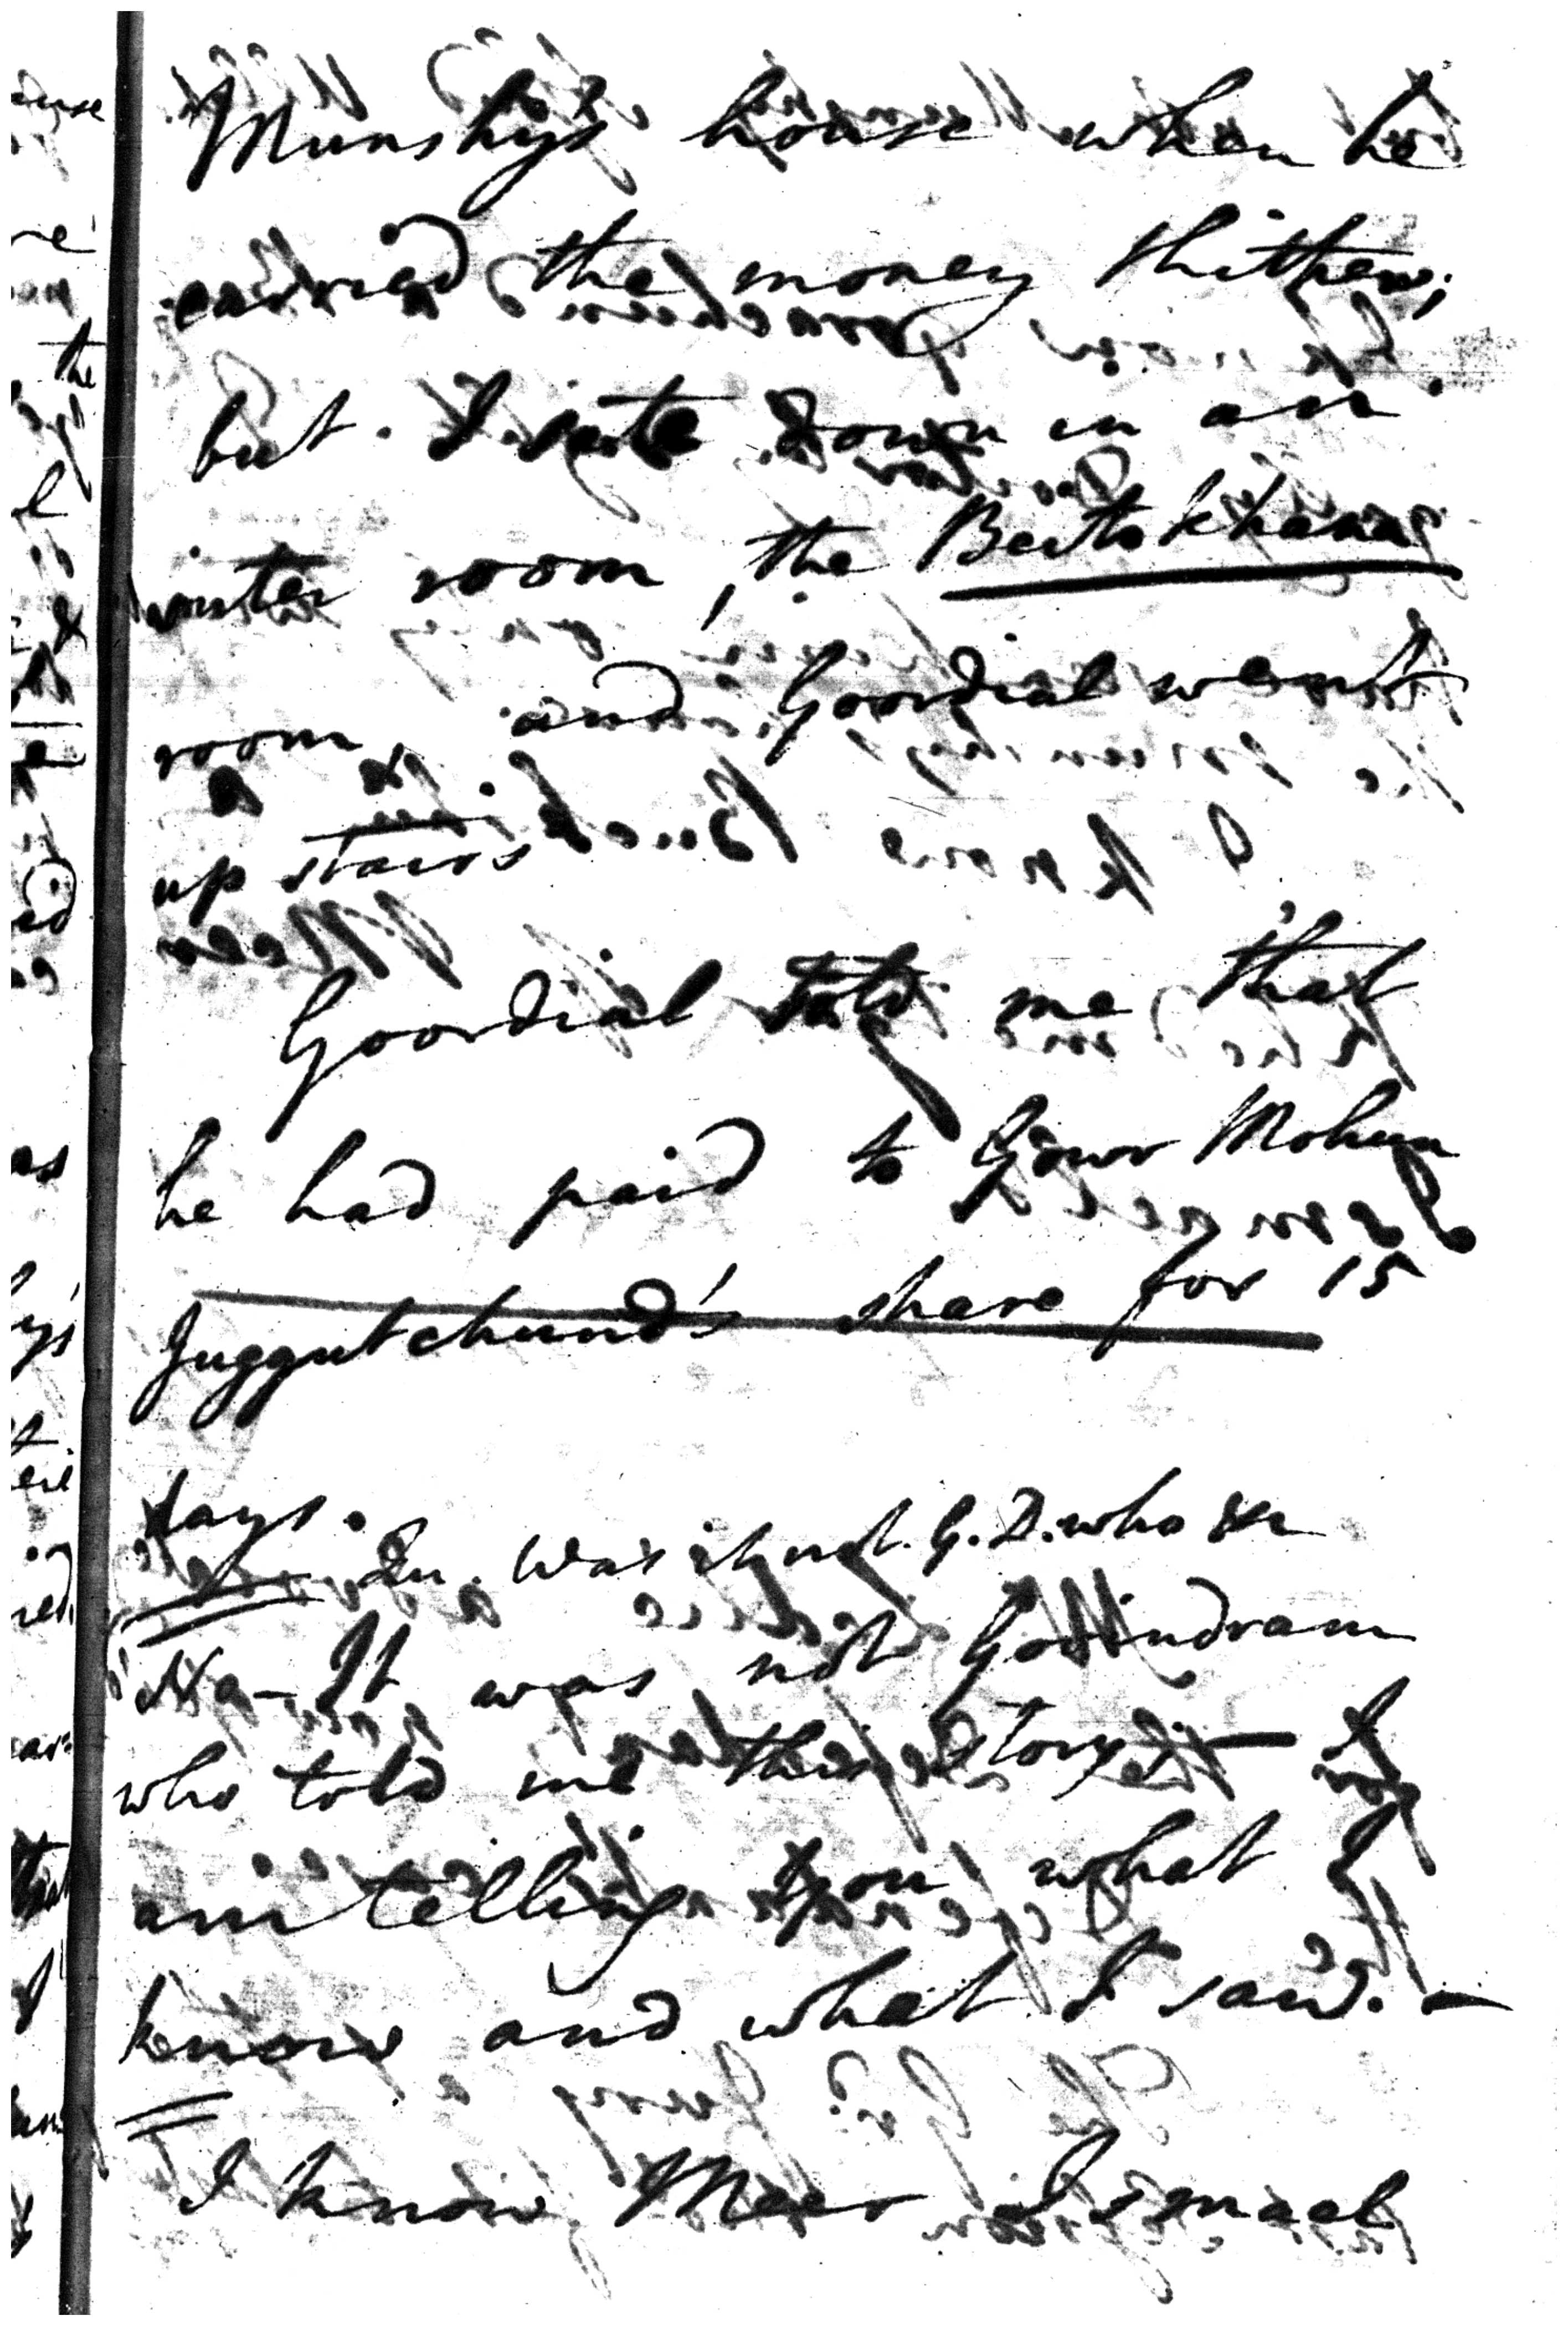 Munshy's house when he
carried the money thither;
but I sate down in an
outer room, the Beitakhana
room, and Goordial went
up stairs
Goordial told me that
he had paid to Gowr Mohun
Juggutchund's share for 15
days.
Qu. Was it not G. D. who &c
No - It was not Govindram
who told me this story - I
am telling you what I
know and what I saw. -
I know Meer Ismael